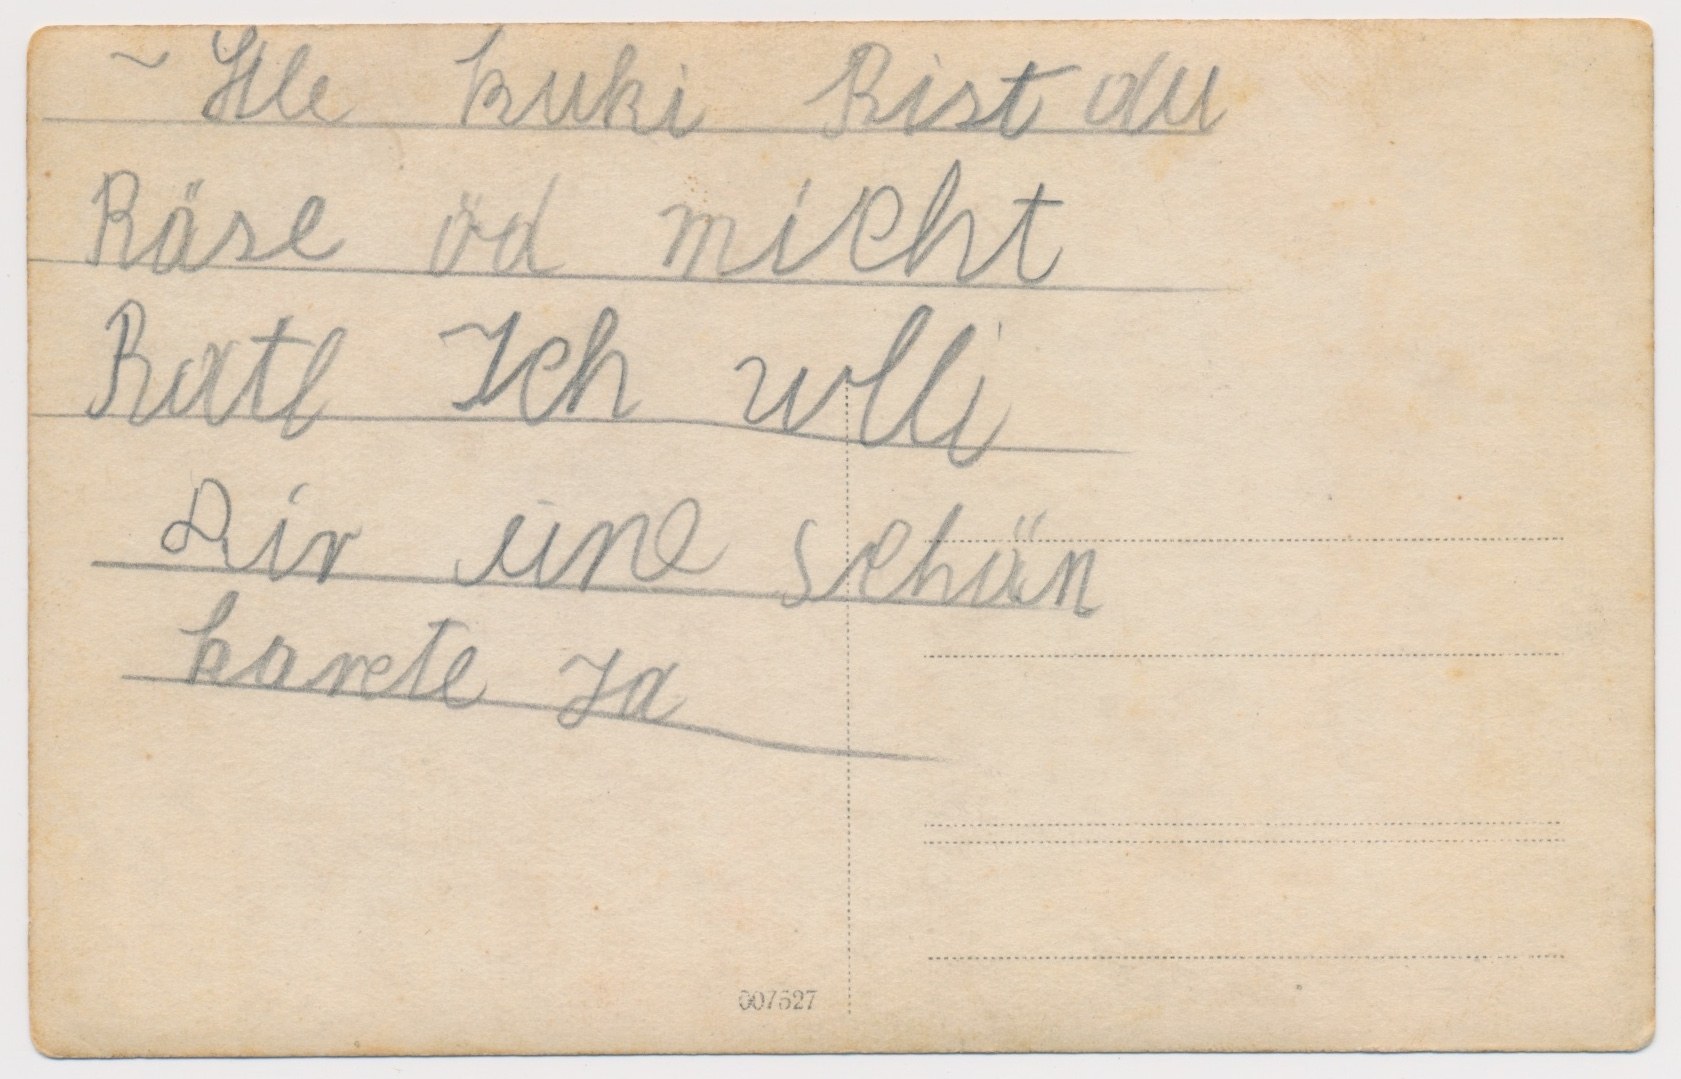 ~ Hle kuki Bist du
Bäse öd micht
Rate Ich wlli
Dir eine schön
karete Ja
007627